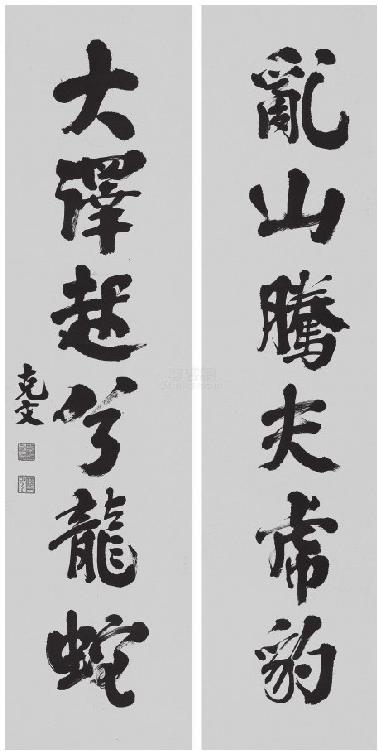 亂山騰夫虎豹
大澤起兮龍蛇
克文